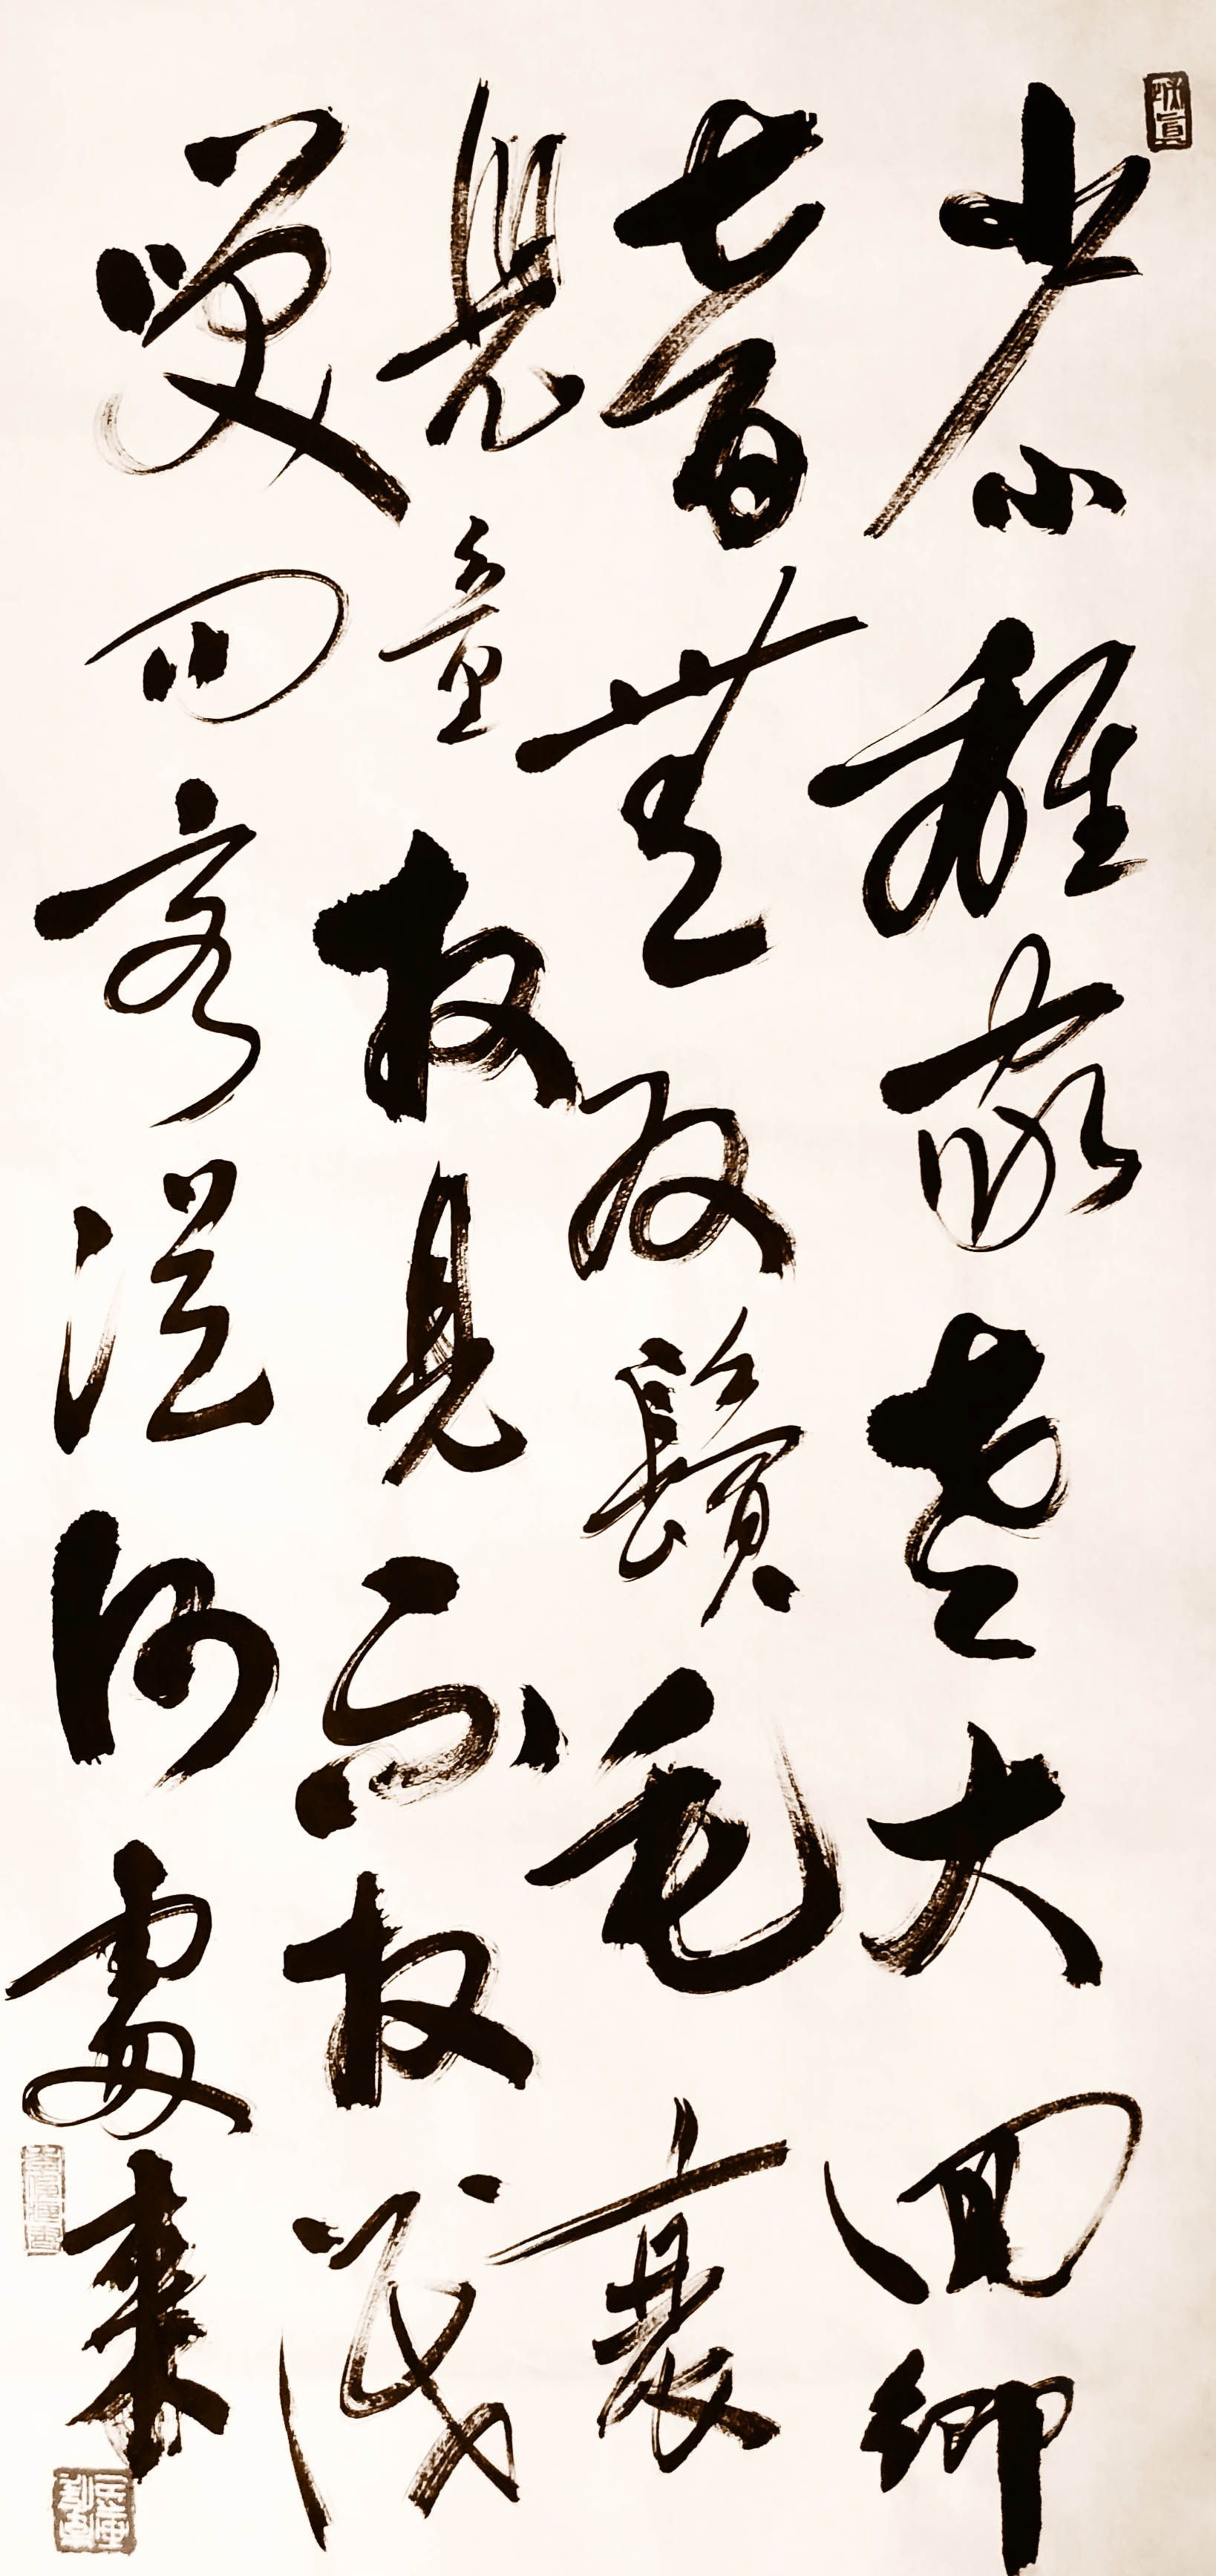 少小離家老大回鄉
音無改鬢毛衰
兒童相見不相識
笑問客從何處來